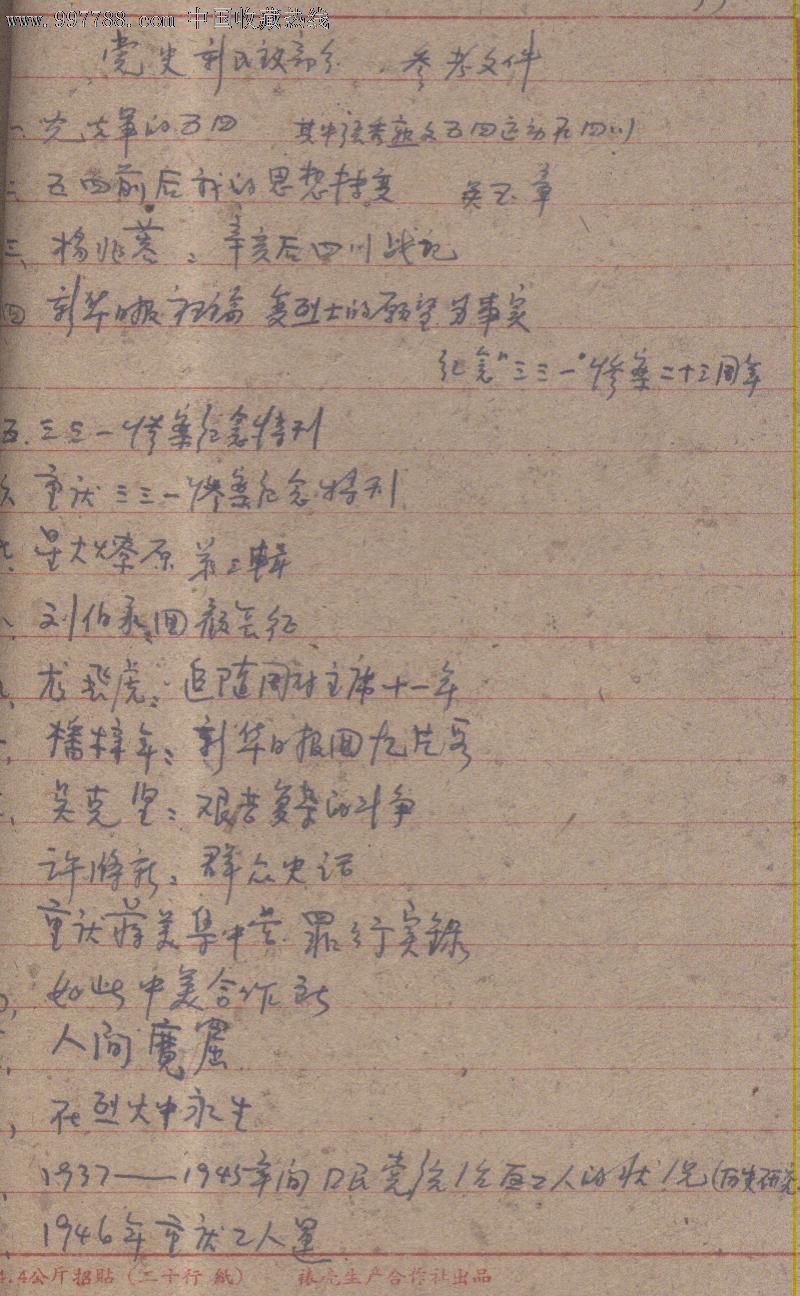 www.997788.com 中国收藏热线
党史新民政部分 参考文件
一、光荣的五四 其中 五四运动在四川
二、五四前后我的思想转变 吴玉章
三、杨兆蓉：辛亥后四川战记
四 新华日报社论 变烈士的愿望为事实
纪念"三三一"惨案二十三周年
五.三三一惨案纪念特刊
六 重庆三三一惨案纪念特刊
七.星火燎原 第三辑
八、刘伯承：回顾长征
龙飞虎：追随周付主席十一年
潘梓年：新华日报回忆片段
吴克坚：艰苦复杂的斗争
许滌新：群众史话
重庆蒋美集中营罪行实录
如此中美合作所
人间魔窟
在烈火中永生
1937——1945年间口民党统治区工人的状况(历史研究
1946年重庆工人运
4.4公斤招貼（二十行紙） 生产合作社出品